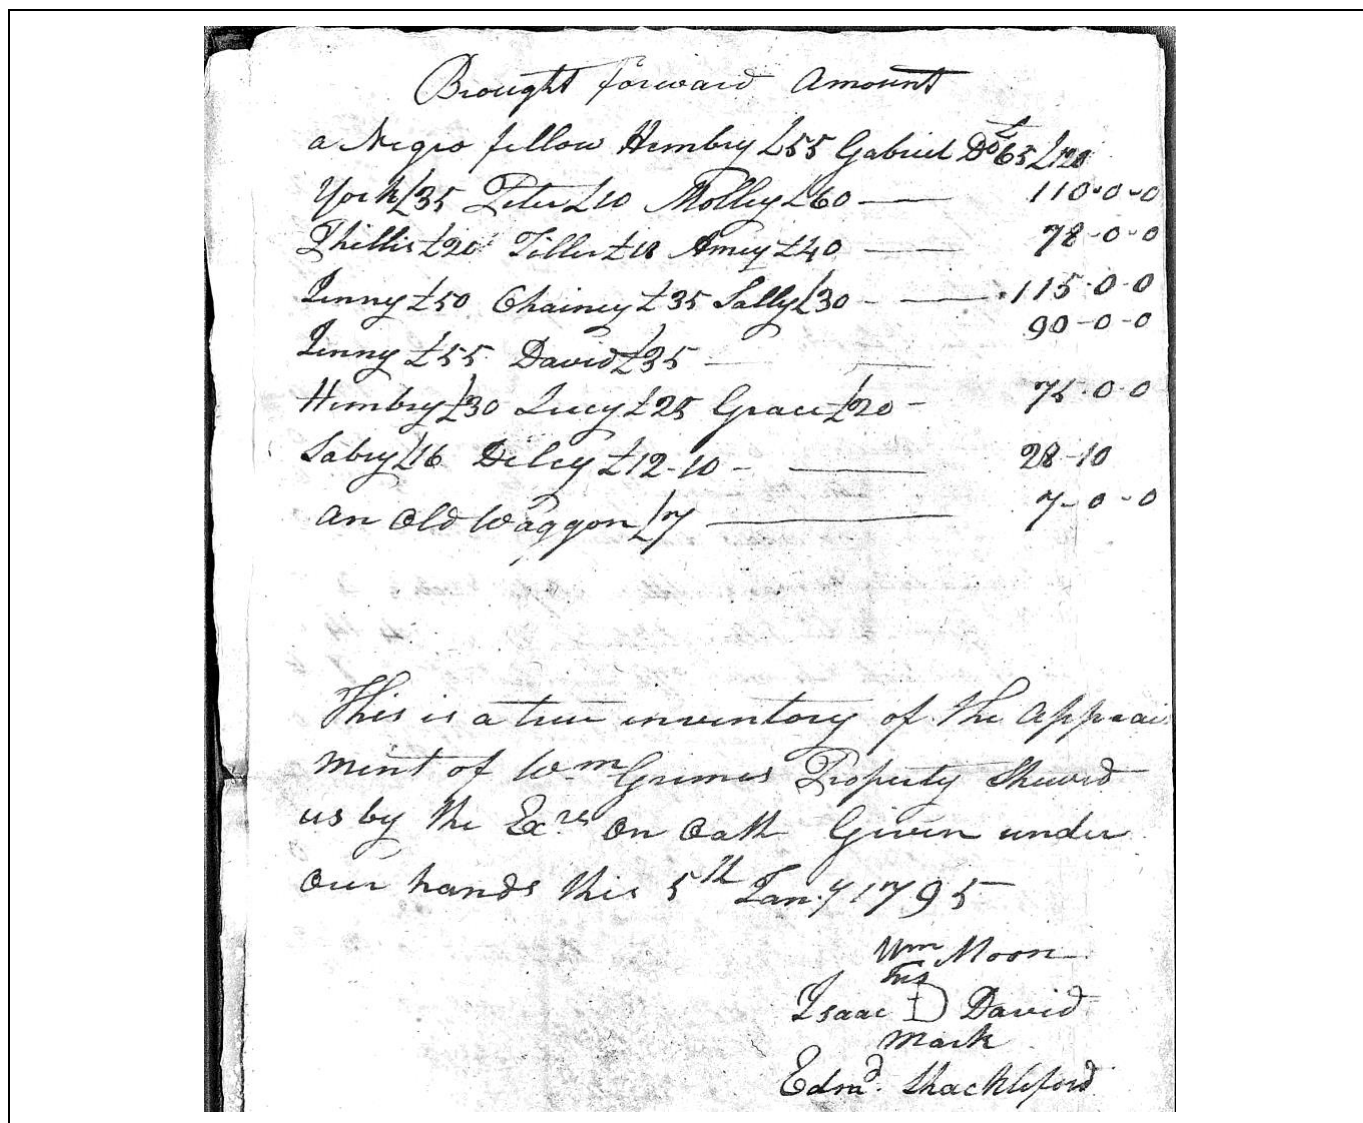 Brought forward Amount
a Negro fellow Humbry £55 Gabriel Do £65 £120
York £35 Peter £10 Molley £60 — 110-0-0
Phillis £20 Tiller £18 Amey £40 — 78-0-0
Jenny £50 Chainey £35 Sally £30 - — 115-0-0
Jenny £55 David £35 — 90-0-0
Humbry £30 Lucy £25 Grace £20 - 75-0-0
Sabry £16 Dilcy £12-10 - — 28-10
an Old Waggon £7 — 7-0-0
This is a true inventory of the Apprais
ment of Wm Grimes Property Shewed
us by the Exrs on Oath Given under
Our hands this 5th Jany 1795
Wm Moon
his
Isaac D David
mark
Edmd. Shackleford